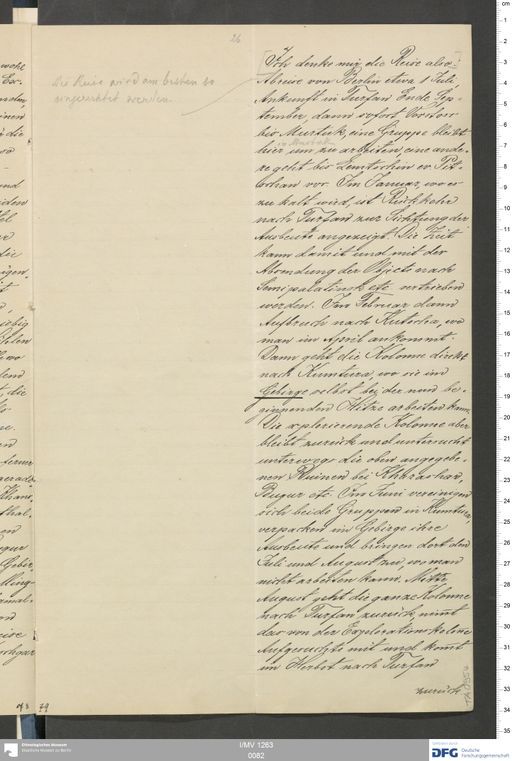 26
Die Reise wird am besten so
eingerichtet werden.
Ich denke mir die Reise also:
Abreise von Berlin etwa 1 Juli,
Ankunft in Turfan Ende Sep-
tember, dann sofort Vorstoss
bis Murtuk, eine Gruppe bleibt
hier um zu arbeiten, eine ande-
re geht bis Lemtschin ev Pit-
schan vor. Im Januar, wo es
zu kalt wird, ist Rückkehr
nach Turfan zur Sichtung der
Ausbeute angezeigt. Die Zeit
kann damit und mit der
Absendung der Objecte nach
Semipalatinsk etc vertrieben
werden. Im Februar dann
Aufbruch nach Kutscha, wo
man im April ankommt.
Dann geht die Kolonne direkt
nach Kumtura, wo sie im
Gebirge selbst bei der nun be-
ginnenden Hitze arbeiten kann.
Die explorierende Kolonne aber
bleibt zurück und untersucht
unterwegs die oben angegebe-
nen Ruinen bei Kharaschar,
Bugur etc. Im Juni vereinigen
sich beide Gruppen in Kumtura,
verpacken im Gebirge ihre
Ausbeute und bringen dort den
Juli und August zu, wo man
nicht arbeiten kann. Mitte
August geht die ganze Kolonne
nach Turfan zurück, nimt
das von der Explorationskolone
Aufgesuchte mit und komt
im Herbst nach Turfan
zurück
TA 6956
79
Ethnologisches Museum
Staatliche Museen zu Berlin
I/MV 1263
0082
DFG
Deutsche
Forschungsgemeinschaft